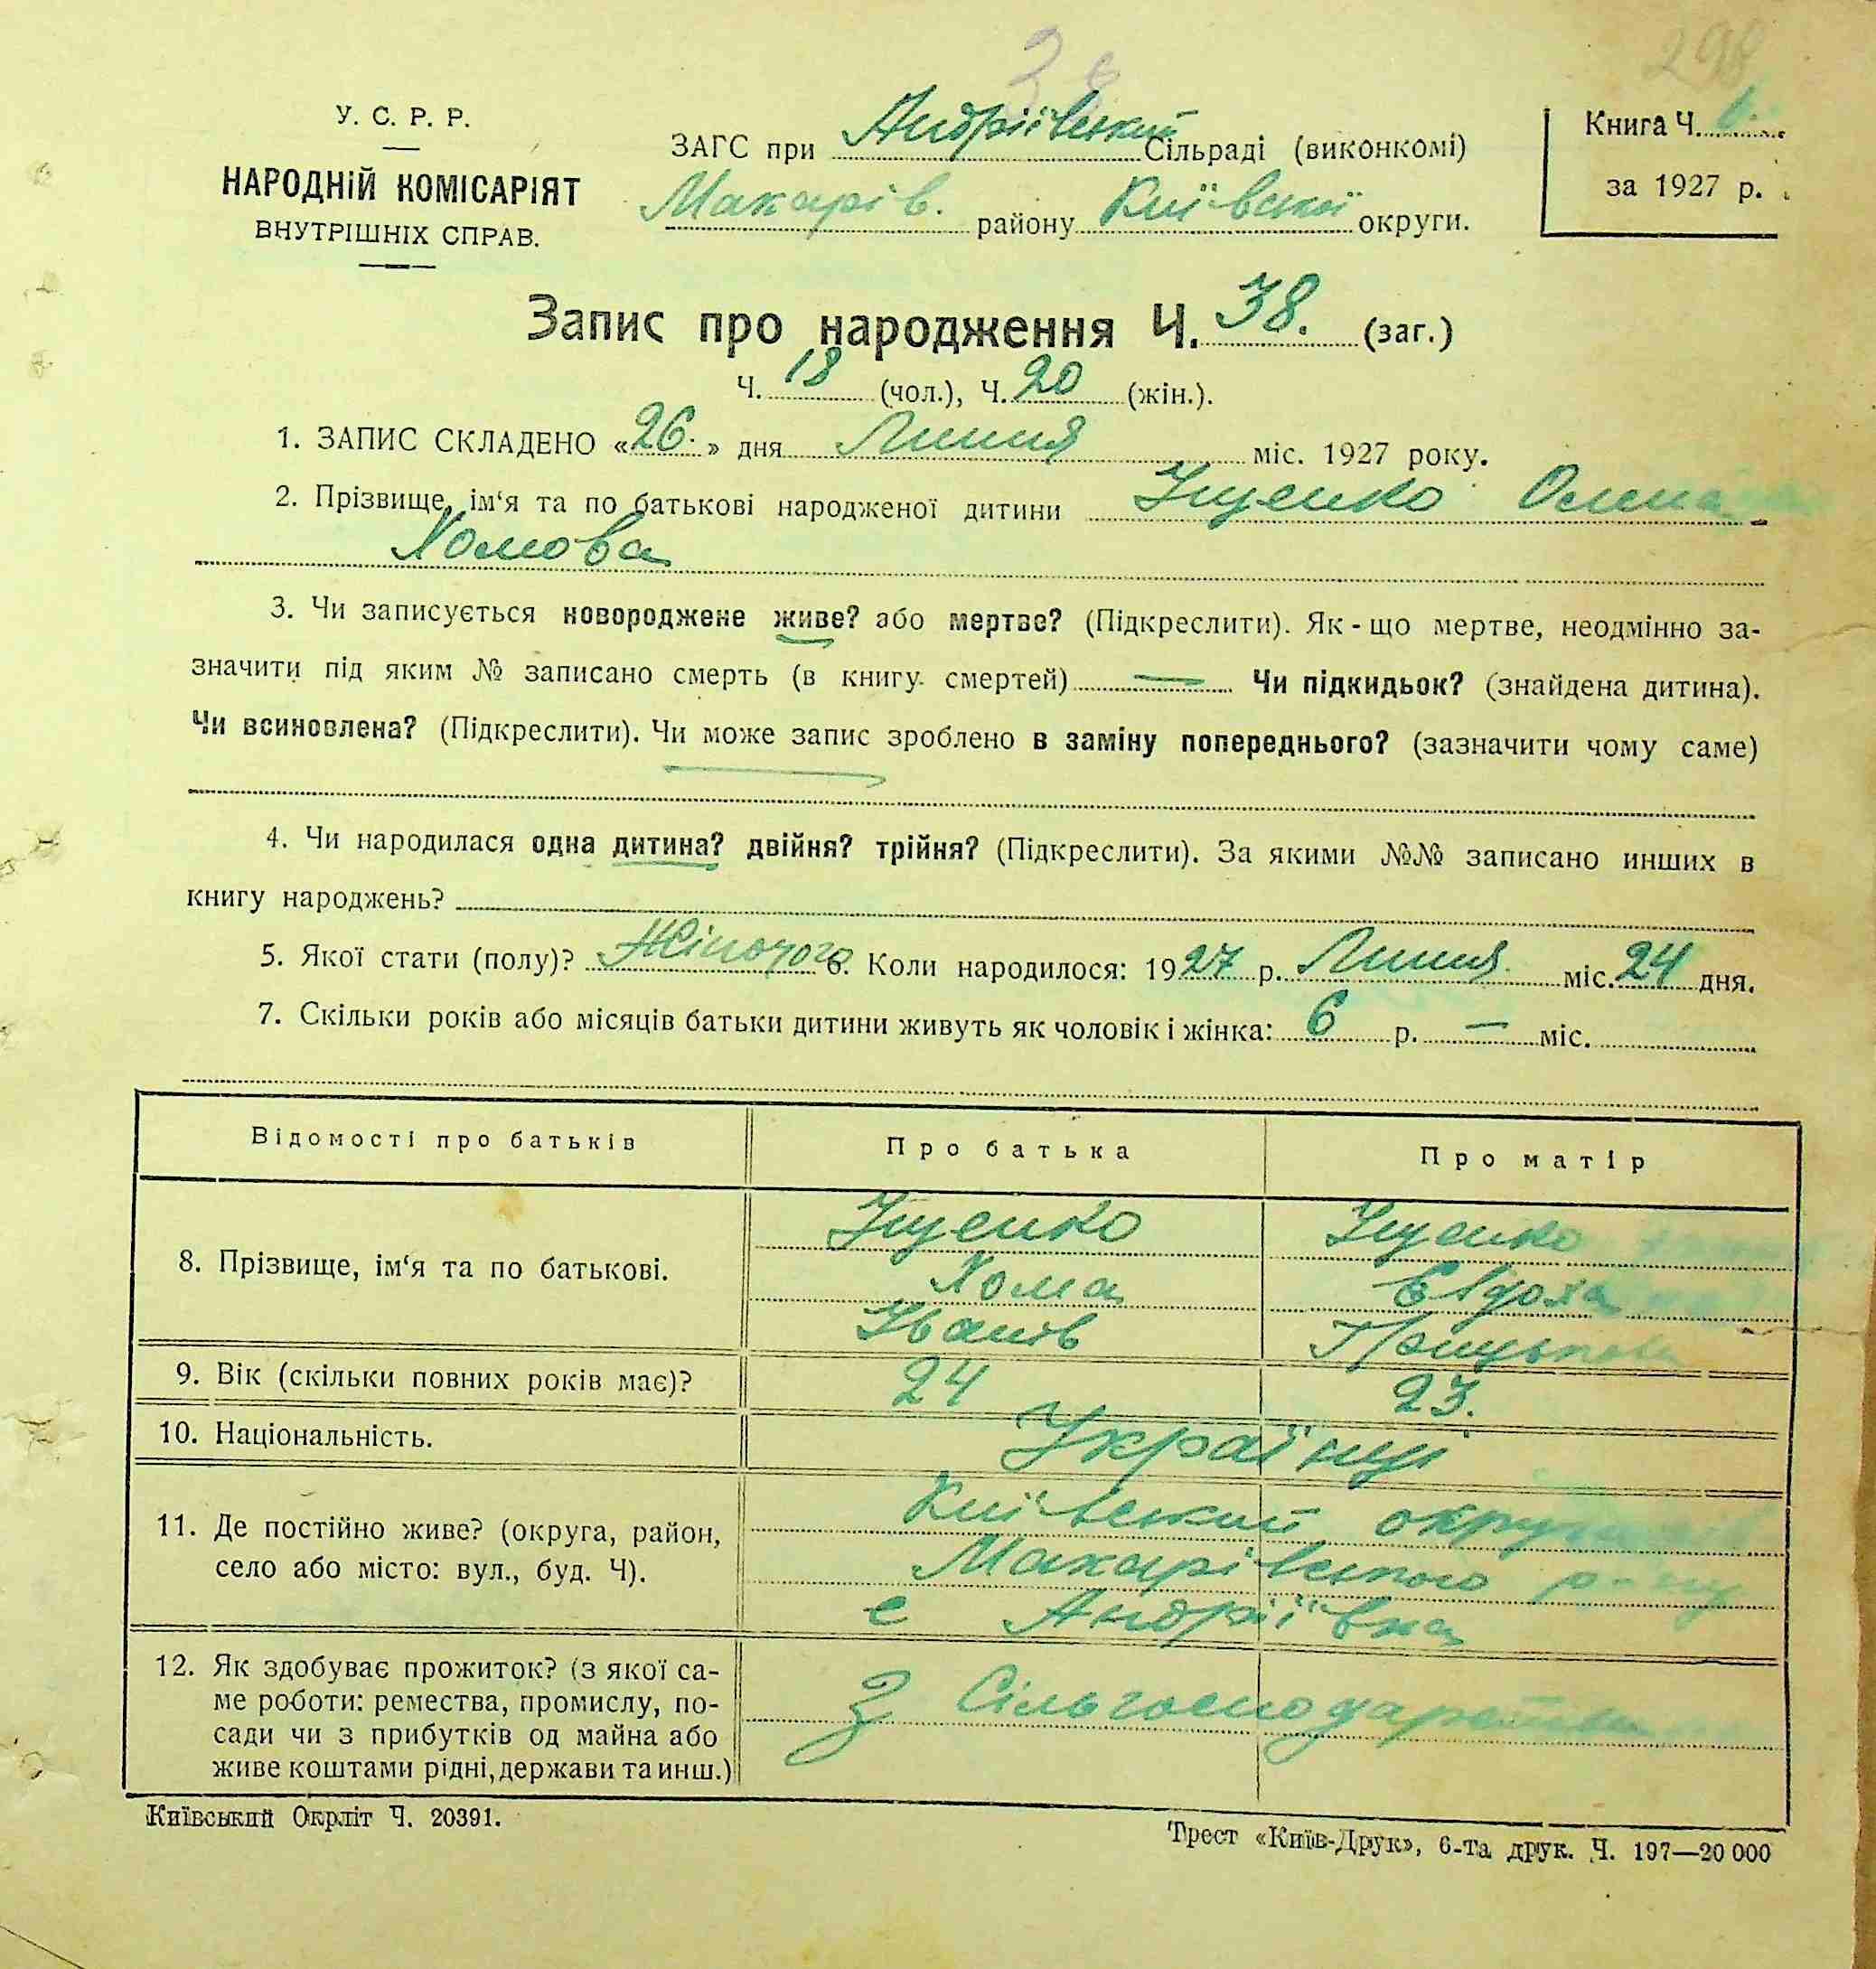 298
38
У. С. Р. Р.
НАРОДНІЙ КОМІСАРІЯТ
ВНУТРІШНІХ СПРАВ.
ЗАГС при Андріївський Сільраді (виконкомі)
Макарів. району Київської округи.
Книга Ч.
за 1927 р.
Запис про народження Ч. 38. (заг.)
Ч. 18 (чол.), Ч. 20 (жін.).
1. ЗАПИС СКЛАДЕНО «26.» дня Липня міс. 1927 року.
2. Прізвище, ім‘я та по батькові народженої дитини Іщенко Олена
Хомова
3. Чи записується новороджене живе? або мертве? (Підкреслити). Як-що мертве, неодмінно за-
значити під яким № записано смерть (в книгу смертей) — Чи підкидьок? (знайдена дитина).
Чи всиновлена? (Підкреслити). Чи може запис зроблено в заміну попереднього? (зазначити чому саме)
4. Чи народилася одна дитина? двійня? трійня? (Підкреслити). За якими №№ записано инших в
книгу народжень?
5. Якої стати (полу)? Жіночого 6. Коли народилося: 1927 р. Липня міс. 24 дня.
7. Скільки років або місяців батьки дитини живуть як чоловік і жінка: 6 р. — міс.
Відомості про батьків Про батька Про матір
8. Прізвище, ім‘я та по батькові.
Іщенко Іщенко
Хома Євдоха
Іванів Грицькова
9. Вік (скільки повних років має)? 24 23.
10. Національність. Українці
11. Де постійно живе? (округа, район,
село або місто: вул., буд. Ч).
Київський округи
Макарівського р-ну
с Андріївка
12. Як здобуває прожиток? (з якої са-
ме роботи: ремества, промислу, по-
сади чи з прибутків од майна або
живе коштами рідні, держави та инш.)
З Сільгосподарства
Київський Окрліт Ч. 20391.
Трест «Київ-Друк», 6-та друк. Ч. 197—20 000